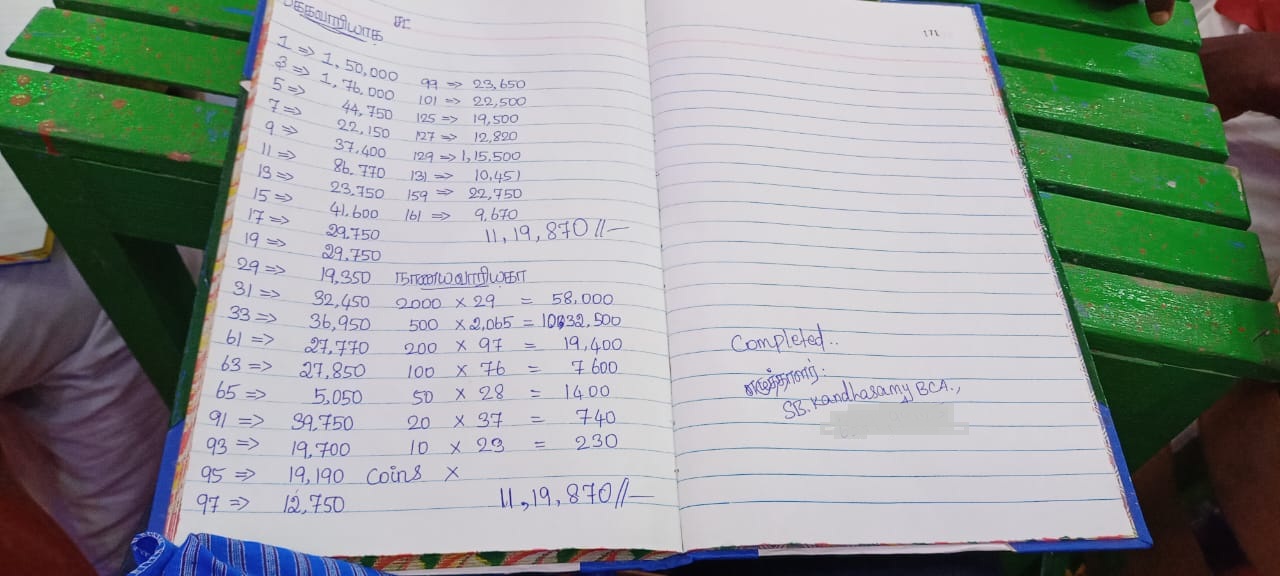 பக்கவாரியாக
1 => 1,50,000
3 => 1,76,000
5 => 44,750
7 => 22,150
9 => 37,400
11 => 86,770
13 => 23,750
15 => 41,600
17 => 29,750
19 => 29,750
29 => 19,350
31 => 32,450
33 => 36,950
61 => 27,770
63 => 27,850
65 => 5,050
91 => 39,750
93 => 19,700
95 => 19,190
97 => 12,750
99 => 23,650
101 => 22,500
125 => 19,500
127 => 12,820
129 => 1,15,500
131 => 10,451
159 => 22,750
161 => 9,670
11,19,870//—
2000 × 29 = 58,000
500 × 2,065 = 10,32,500
200 × 97 = 19,400
100 × 76 = 7600
50 × 28 = 1400
20 × 37 = 740
10 × 23 = 230
Coins ×
11,19,870//—
171
Completed..
எழுத்தாளர்:
SB. Kandhasamy BCA.,